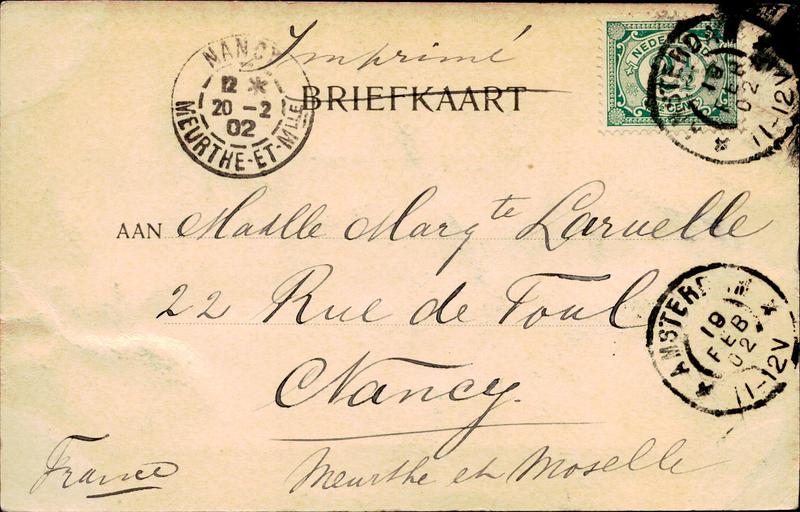 Imprimé
BRIEFKAART
NEDERLAND
2½
CENT
NANCY
12 *
20 - 2
02
MEURTHE-ET-Mlle
19
FEB
02
11-12V
AAN Madlle Margte Laruelle
22 Rue de Toul
Nancy.
AMSTERDAM
19
FEB
02
11-12V
France
Meurthe et Moselle